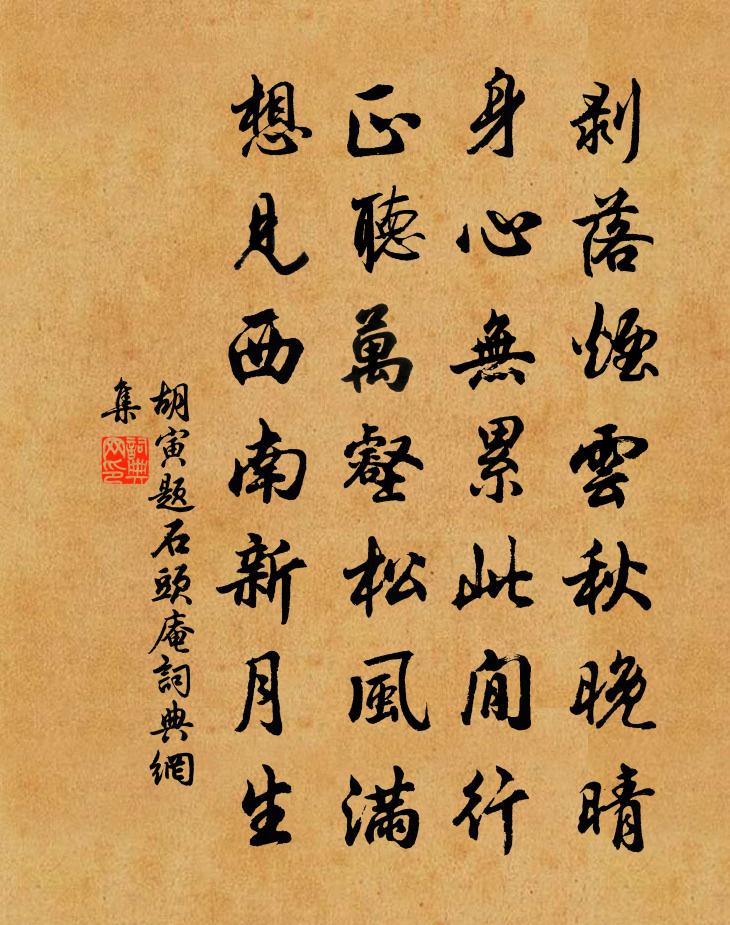 剥落煙雲秋晚晴
身心無累此閒行
正聽萬壑松風滿
想見西南新月生
胡寅題石頭庵詞典網
集
詞典網印